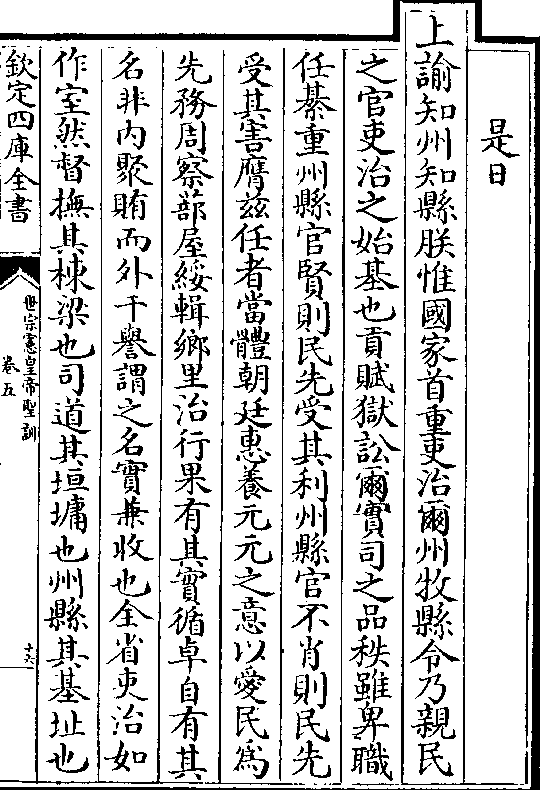 是日
上諭知州知縣朕惟國家首重吏治爾州牧縣令乃親民
之官吏治之始基也貢賦獄訟爾實司之品秩雖卑職
任綦重州縣官賢則民先受其利州縣官不肖則民先
受其害膺兹任者當體朝廷惠養元元之意以愛民為
先務周察蔀屋綏輯鄉里治行果有其實循卓自有其
名非内聚賄而外干譽謂之名實兼收也全省吏治如
作室然督撫其棟梁也司道其垣墉也州縣其基址也
欽定四庫全書
世宗憲皇帝聖訓
卷五
十六